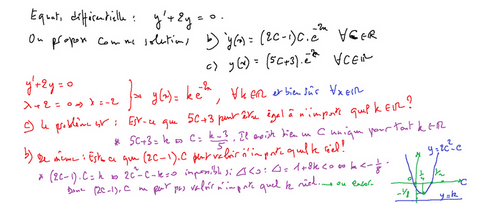 Equat. différentielle : y' + 2y = 0.
On propose comme solution, b) y(x) = (2C-1)C.e^{-2x} ∀C∈ℝ
c) y(x) = (5C+3).e^{-2x} ∀C∈ℝ
y' + 2y = 0
λ + 2 = 0 ⇒ λ = -2 } ⇒ y(x) = k e^{-2x}, ∀k∈ℝ et bien sûr ∀x∈ℝ
c) Le problème est : Est-ce que 5C+3 peut être égal à n'importe quel k∈ℝ ?
* 5C+3 = k ⇔ C = \frac{k-3}{5}. Il existe bien un C unique pour tout k∈ℝ
b) De même : Est-ce que (2C-1).C peut valoir n'importe quel k réel ?
* (2C-1).C = k ⇔ 2C²-C-k=0 impossible si Δ<0 : Δ = 1+8k<0 ⇔ k<-\frac{1}{8}.
Donc (2C-1).C ne peut pas valoir n'importe quel k réel. → ou encore
y=2C²-C
0
1/4
1/2
C
-1/8
y=k